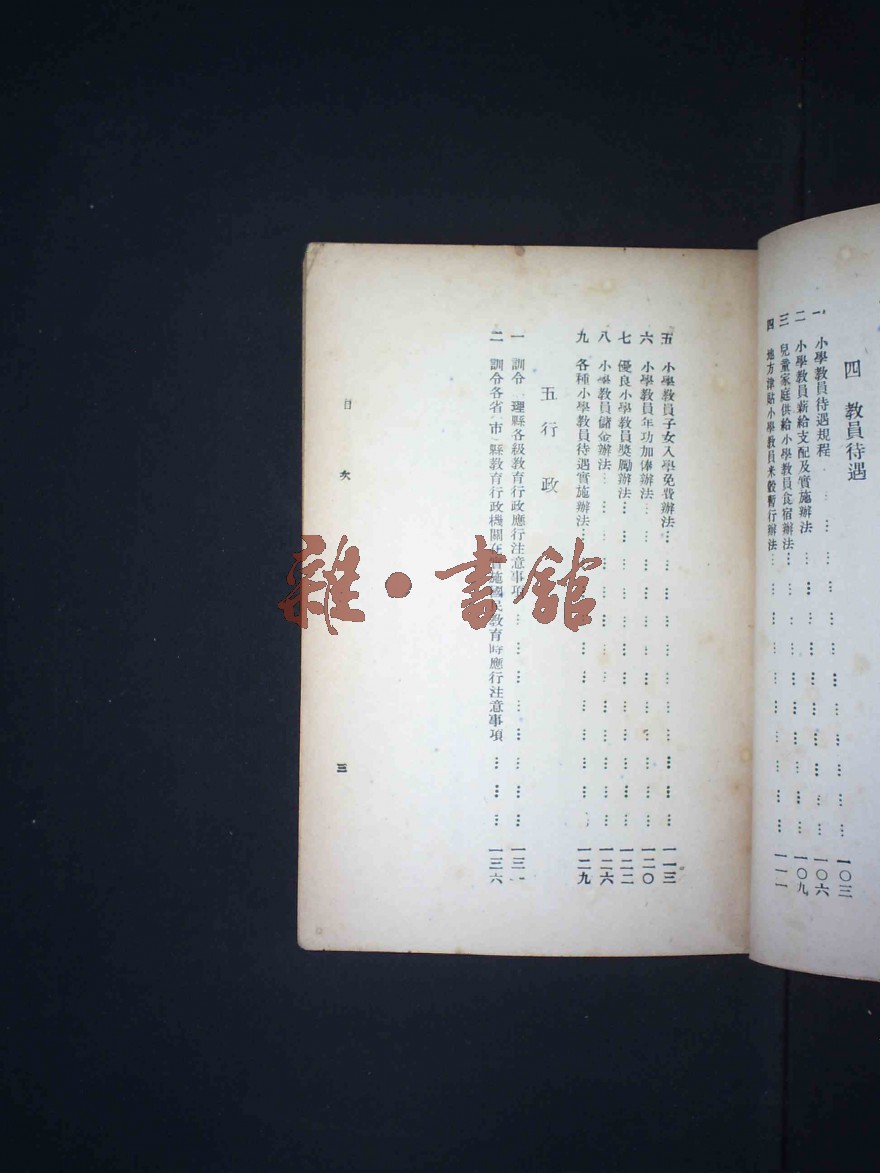 四 教員待遇
一 小學教員待遇規程 … … … … … … 一〇三
二 小學教員薪給支配及實施辦法 … … … … … … 一〇六
三 兒童家庭供給小學教員食宿辦法 … … … … … … 一〇九
四 地方津貼小學教員米穀暫行辦法 … … … … … … 一一一
五 小學教員子女入學免費辦法 … … … … … … … … 一一三
六 小學教員年功加俸辦法 … … … … … … … … … 一二〇
七 優良小學教員獎勵辦法 … … … … … … … … … 一二二
八 小學教員儲金辦法 … … … … … … … … … … 一二六
九 各種小學教員待遇實施辦法 … … … … … … … 一二九
五 行政
一 訓令 理縣各級教育行政應行注意事項 … … … … … … 一三一
二 訓令各省(市)縣教育行政機關在實施國民教育時應行注意事項 … … … 一三六
目次
三
雜·書館